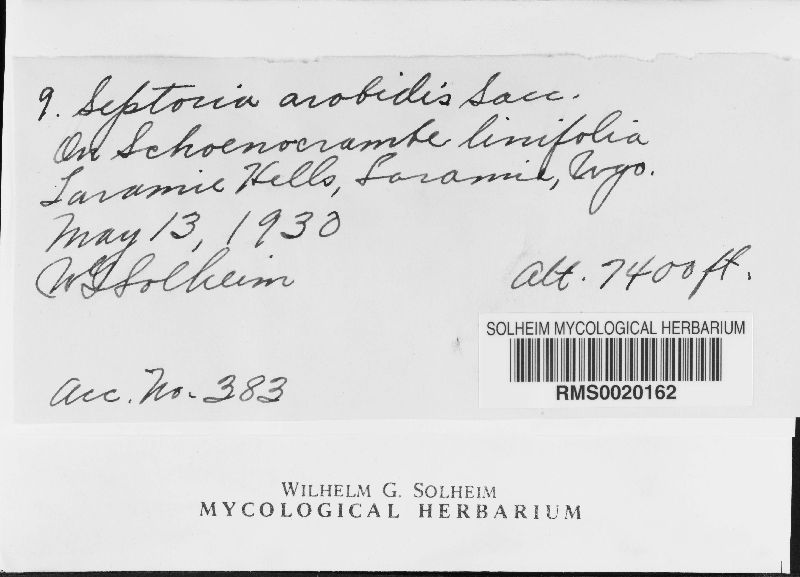 9. Septoria arabidis Sacc.
On Schoenocrambe linifolia
Laramie Hills, Laramie, Wyo.
May 13, 1930
WG Solheim
Alt. 7400 ft.
SOLHEIM MYCOLOGICAL HERBARIUM
RMS0020162
Acc. No. 383
WILHELM G. SOLHEIM
MYCOLOGICAL HERBARIUM